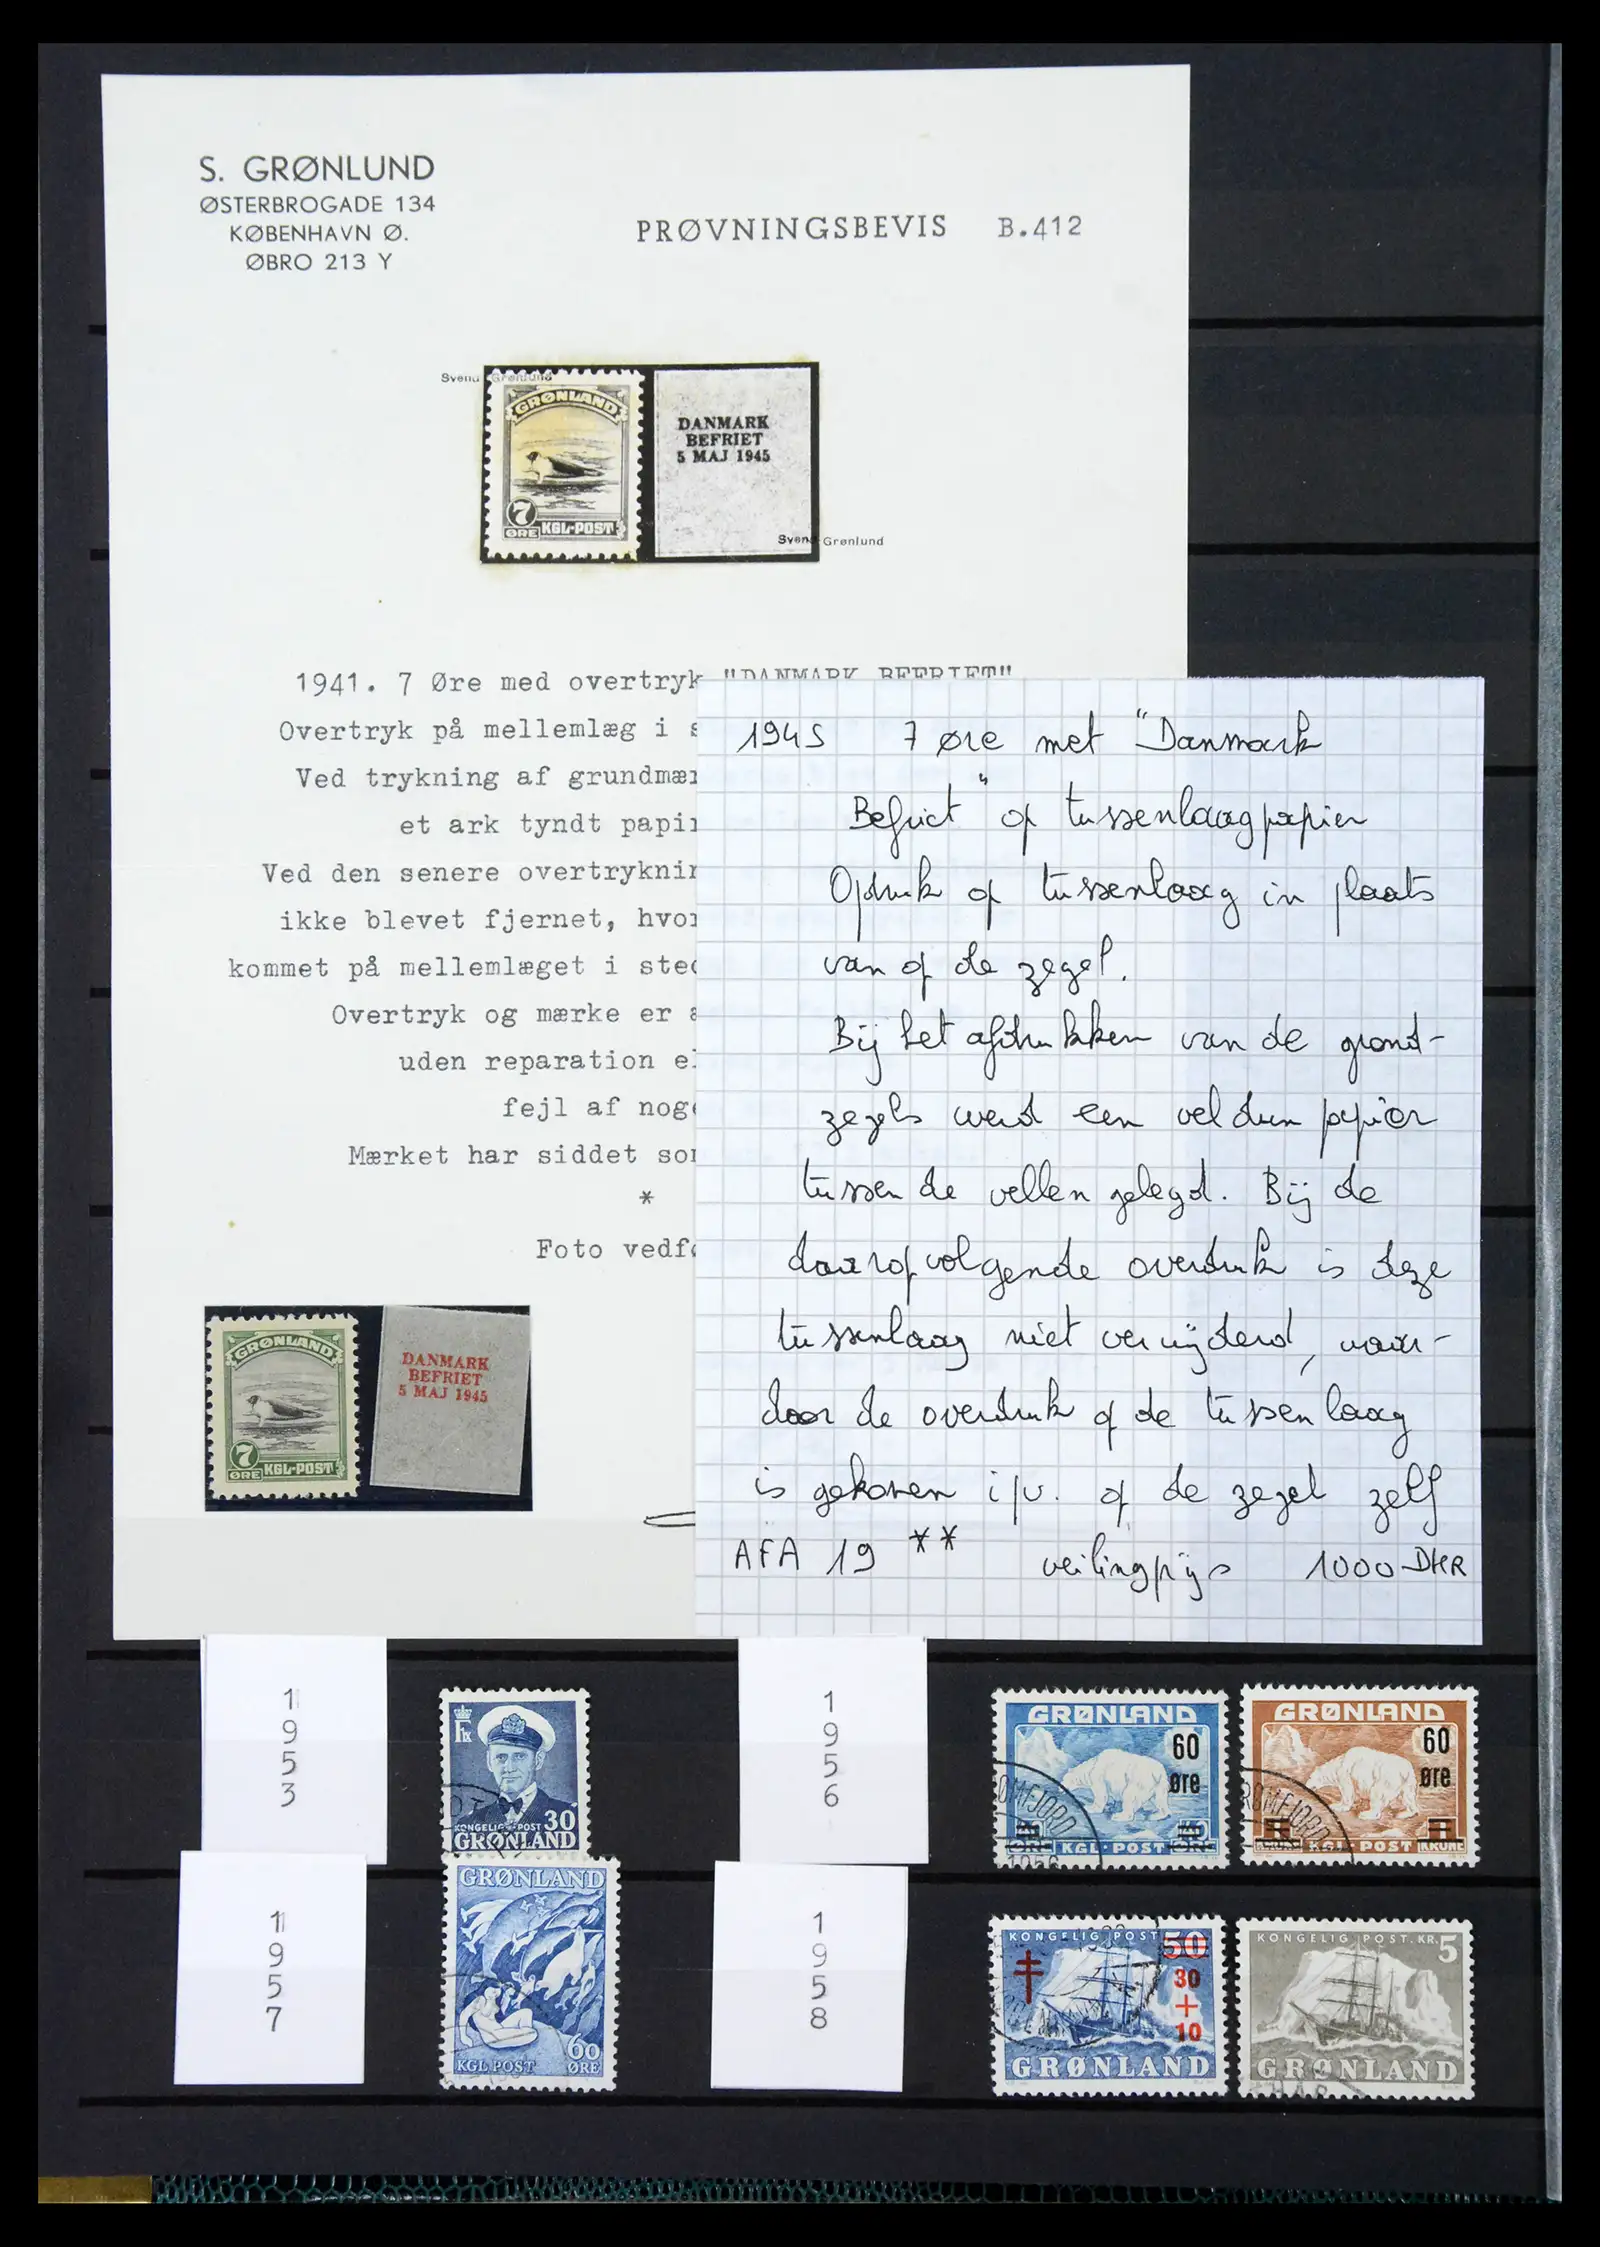 S. GRØNLUND
ØSTERBROGADE 134
KØBENHAVN Ø.
ØBRO 213 Y
PRØVNINGSBEVIS B.412
Svend Grønlund
GRØNLAND
7
ØRE KGL-POST
DANMARK
BEFRIET
5 MAJ 1945
Svend Grønlund
1941. 7 Øre med overtryk "DANMARK BEFRIET"
Overtryk på mellemlæg i
Ved trykning af
et ark tyndt
Ved den senere
ikke blevet fjernet,
kommet på mellemlæget i
Overtryk og mærke er
uden reparation
fejl af
Mærket har siddet
*
Foto
GRØNLAND
7
ØRE KGL-POST
DANMARK
BEFRIET
5 MAJ 1945
1945 7 øre met "Danmark
Befriet" op tussenlaagpapier
Opdruk op tussenlaag in plaats
van op de zegel.
Bij het afdrukken van de grond-
zegels werd een vel dun papier
tussen de vellen gelegd. Bij de
daaropvolgende overdruk is deze
tussenlaag niet verwijderd, waar-
door de overdruk op de tussenlaag
is gekomen i/v. op de zegel zelf
AFA 19 ** veilingprijs 1000 DKR
1
9
5
3
FIX
KONGELIG POST 30
GRØNLAND
1
9
5
6
GRØNLAND
60
øre
KGL-POST
ROMFJORD
1956
GRØNLAND
60
øre
KGL-POST KRONE
RØMFJORD
1
9
5
7
GRØNLAND
60
KGL POST ØRE
1
9
5
8
KONGELIG POST 50
30
+
10
GRØNLAND
KONGELIG POST. KR. 5
GRØNLAND